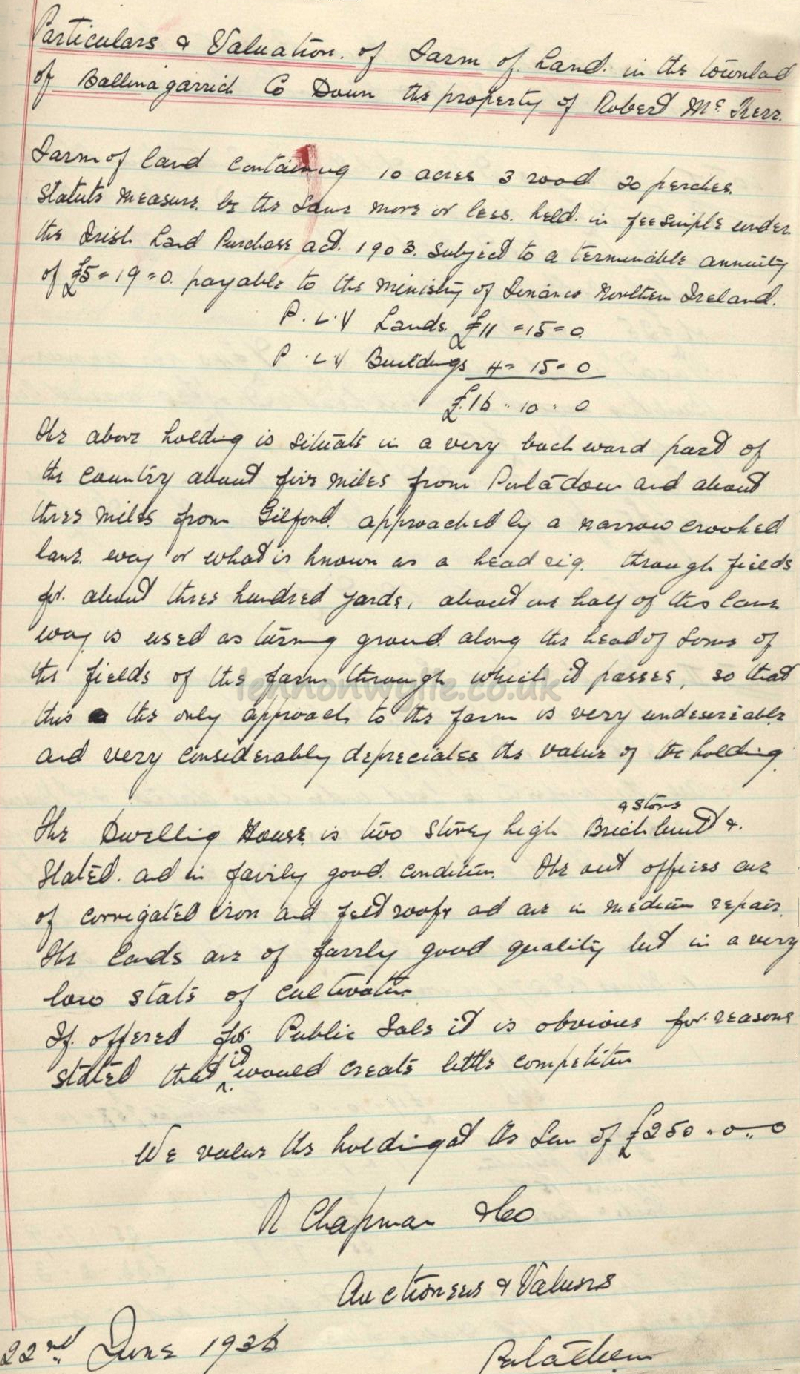 Particulars & Valuation of Farm of Land in the townland
of Ballinagarrick Co Down the property of Robert McKerr.
Farm of land containing 10 acres 3 rood 20 perches
Statute measure be the same more or less held in fee simple under
the Irish Land Purchase act 1903 subject to a terminable annuity
of £5=19=0 payable to the ministry of Finance Northern Ireland.
P.L.V Lands £11=15=0
P.L.V Buildings 4=15=0
£16.10.0
The above holding is situate in a very backward part of
the country about five miles from Portadown and about
three miles from Gilford. approached by a narrow crooked
lane way or what is known as a head rig through fields
for about three hundred yards, about one half of this lane
way is used as turning ground along the head of some of
the fields of the farm through which it passes, so that
this the only approach to the farm is very undesireable
and very considerably depreciates the value of the holding.
lennonwylie.co.uk
The Dwelling House is two storey high Brick & stone built &
Slated ad in fairly good condition The out offices are
of corrigated iron and felt roofs ad are in medium repair.
The lands are of fairly good quality but in a very
low state of cultivation
If offered for Public Sale it is obvious for reasons
stated that it would create little competition
We value the holding at the Sum of £250.0.0
R Chapman & Co
Auctioneers & Valuers
Portadown
22nd June 1936